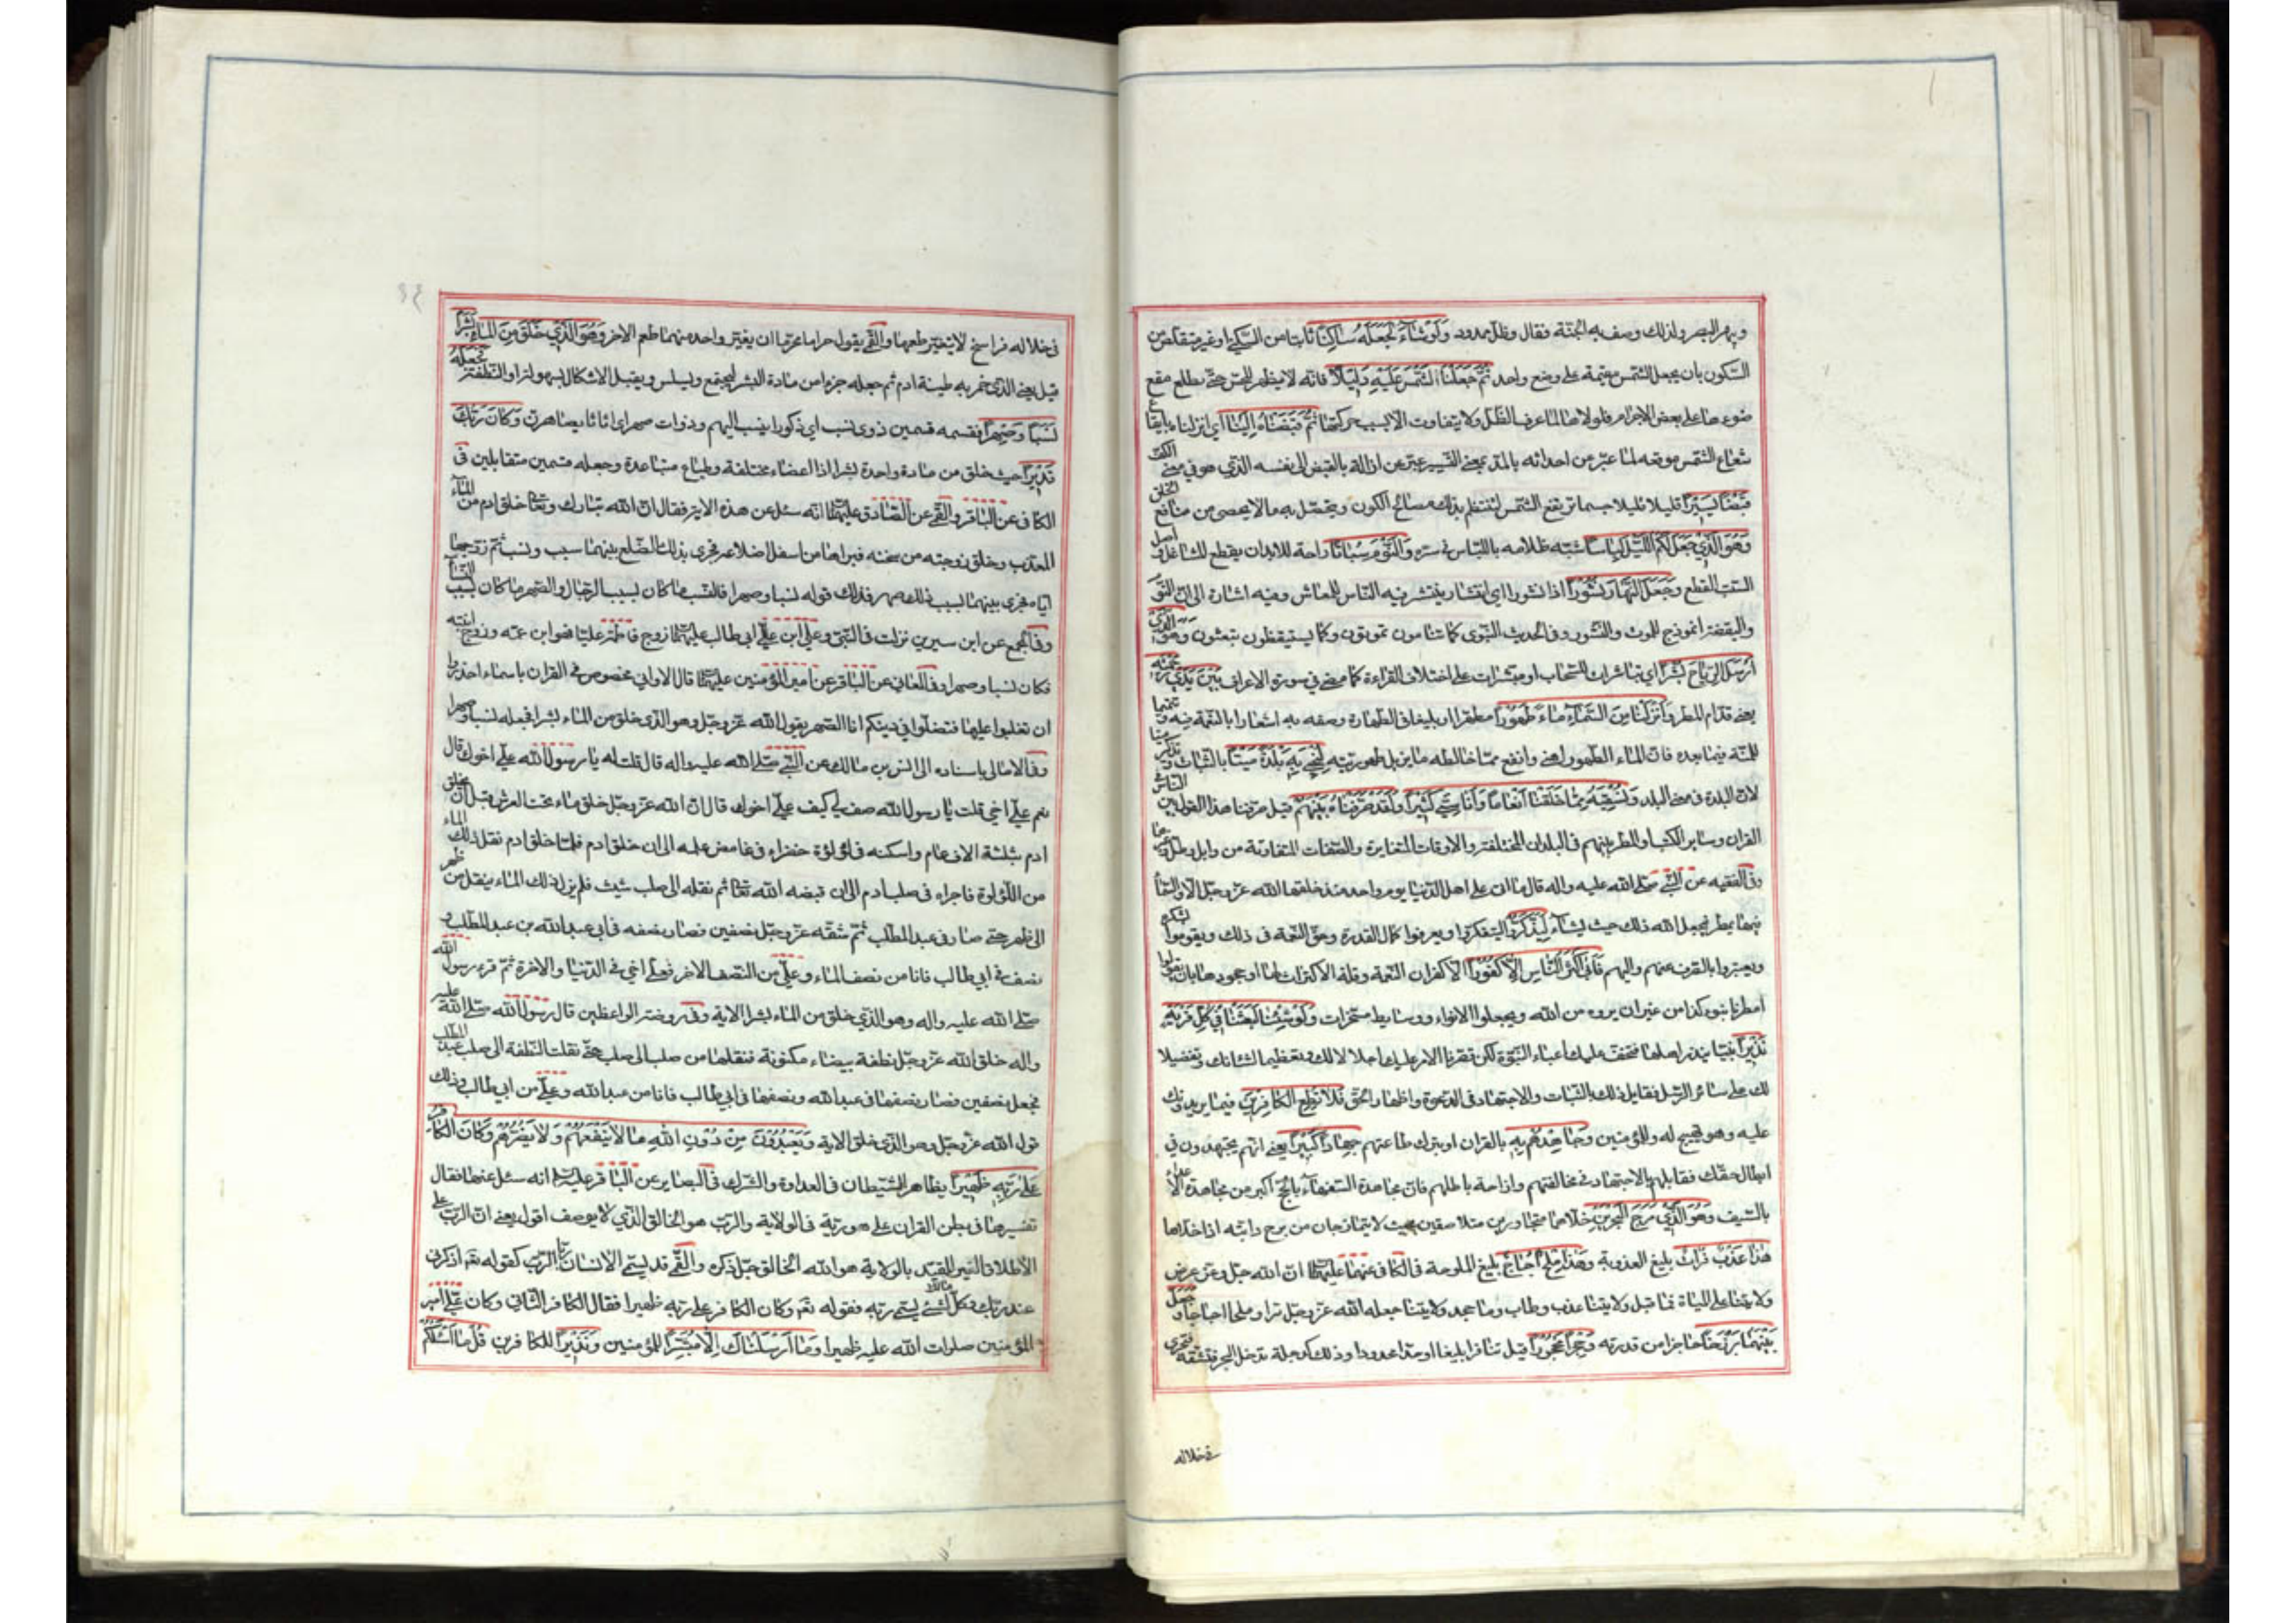 ويبهر البصر ولذلك وصف به الجنة فقال وظل ممدود وَلَوْ شَاءَ لَجَعَلَهُ سَاكِنًا ثابتا من السكنى او غير متقلص من
السكون بان يجعل الشمس مقيمة على وضع واحد ثُمَّ جَعَلْنَا الشَّمْسَ عَلَيْهِ دَلِيلًا فانه لا يظهر للحس حتى يطلع فيقع
ضوءها على بعض الاجرام فلولاها لما عرف الظل ولا يتفاوت الا بسبب حركتها ثُمَّ قَبَضْنَاهُ إِلَيْنَا اى ازلناه بايقاع
شعاع الشمس موقعه لما عبر من احداثه بالمد بمعنى التسيير عبر عن ازالته بالقبض الى نفسه الذى هو في معنى الكف
قَبْضًا يَسِيرًا قليلا قليلا حسما ترتفع الشمس لتنتظم بذلك مصالح الكون ويتحصل به ما لا يحصى من منافع الخلق
وَهُوَ الَّذِي جَعَلَ لَكُمُ اللَّيْلَ لِبَاسًا شبه ظلامه باللباس في ستره وَالنَّوْمَ سُبَاتًا راحة للابدان بقطع المشاغل واصل
السبت القطع وَجَعَلَ النَّهَارَ نُشُورًا اذا نشور اى انتشار ينتشر فيه الناس للمعاش وفيه اشارة الى ان النوم
واليقظة انموذج للموت والنشور وفى الحديث النبوى كما تنامون تموتون وكما تستيقظون تبعثون وَهُوَ الَّذِي
أَرْسَلَ الرِّيَاحَ بُشْرًا اى ناشرات للسحاب او مبشرات على اختلاف القراءة كما مضى في سورة الاعراف بَيْنَ يَدَيْ رَحْمَتِهِ
يعنى قدام المطر وَأَنْزَلْنَا مِنَ السَّمَاءِ مَاءً طَهُورًا مطهرا او بليغا فى الطهارة وصفه به اشعارا بالنعمة فيه وتتميما
للمنة فيما بعده فان الماء الطهور اهنى وانفع مما خالطه ما يزيل طهوريته لِنُحْيِيَ بِهِ بَلْدَةً مَيْتًا بالنبات وتذكير ميتا
لان البلدة فى معنى البلد وَنُسْقِيَهُ مِمَّا خَلَقْنَا أَنْعَامًا وَأَنَاسِيَّ كَثِيرًا وَلَقَدْ صَرَّفْنَاهُ بَيْنَهُمْ قيل صرفنا هذا القول بين الناس في
القران وساير الكتب او المطر بينهم فى البلدان المختلفة والاوقات المتغايرة والصفات المتفاوتة من وابل وطل وغيرهما
وفى الفقيه عن النبى صلى الله عليه واله قال ما اتى على اهل الدنيا يوم واحد منذ خلقها الله عز وجل الا والسماء
فيها يمطر فيجعل الله ذلك حيث يشاء لِيَذَّكَّرُوا ليتفكروا ويعرفوا كمال القدرة وحق النعمة فى ذلك ويقوموا بشكره
ويعتبروا بالصرف عنهم واليهم فَأَبَى أَكْثَرُ النَّاسِ إِلَّا كُفُورًا الا كفران النعمة وقلة الاكتراث لها او جحودها بان يقولوا
امطرنا بنوء كذا من غير ان يروه من الله ويجعلوا الانواء ووسايط مسخرات وَلَوْ شِئْنَا لَبَعَثْنَا فِي كُلِّ قَرْيَةٍ
نَذِيرًا نبيا ينذر اهلها فتخف عليك اعباء النبوة لكن قصرنا الامر عليك اجلالا لك وتعظيما لشانك وتفضيلا
لك على سائر الرسل فقابل ذلك بالثبات والاجتهاد فى الدعوة واظهار الحق فَلَا تُطِعِ الْكَافِرِينَ فيما يريدونك
عليه وهو تهييج له وللمؤمنين وَجَاهِدْهُمْ بِهِ بالقران او بترك طاعتهم جِهَادًا كَبِيرًا يعنى انهم يجتهدون في
ابطال حقك فقابلهم بالاجتهاد في مخالفتهم وازاحة باطلهم فان مجاهدة السفهاء بالحجج اكبر من مجاهدة الاعداء
بالسيف وَهُوَ الَّذِي مَرَجَ الْبَحْرَيْنِ خلاهما متجاورين متلاصقين بحيث لا يتمازجان من مرج دابته اذا خلاها
هَذَا عَذْبٌ فُرَاتٌ بليغ العذوبة وَهَذَا مِلْحٌ أُجَاجٌ بليغ الملوحة فى الكافى عنهما عليهما السلام ان الله جل وعز عرض
ولايتنا على المياه فما قبل ولايتنا عذب وطاب وما جحد ولايتنا جعله الله عز وجل مرا وملحا اجاجا وَجَعَلَ
بَيْنَهُمَا بَرْزَخًا حاجزا من قدرته وَحِجْرًا مَحْجُورًا قيل تنافرا بليغا او حدا محدودا وذلك كدجلة تدخل البحر فتشقه فتجرى
في خلاله
في خلاله فراسخ لا يتغير طعمها والقمى يقول حراما محرما ان يغير واحد منهما طعم الاخر وَهُوَ الَّذِي خَلَقَ مِنَ الْمَاءِ بَشَرًا
قيل يعنى الذى خمر به طينة ادم ثم جعله جزء من مادة البشر ليجتمع ويسلس ويقبل الاشكال بسهولة او النطفة فَجَعَلَهُ
نَسَبًا وَصِهْرًا فقسمه قسمين ذوى نسب اى ذكورا ينسب اليهم وذوات صهر اى اناثا يصاهر بهن وَكَانَ رَبُّكَ
قَدِيرًا حيث خلق من مادة واحدة بشرا ذا اعضاء مختلفة وطباع متباعدة وجعله قسمين متقابلين فى
الكافى عن الباقر والقمى عن الصادق عليهما السلام انه سئل عن هذه الاية فقال ان الله تبارك وتعالى خلق ادم من الماء
العذب وخلق زوجته من سنخه فبراها من اسفل اضلاعه فجرى بذلك الضلع بينهما سبب ونسب ثم زوجها
اياه فجرى بينهما بسبب ذلك صهر فذلك قوله نسبا وصهرا فالنسب ما كان بسبب الرجال والصهر ما كان بسبب النساء
وفى المجمع عن ابن سيرين نزلت فى النبى وعلى ابن ابى طالب عليهما زوج فاطمة عليا فهو ابن عمه وزوج ابنته
فكان نسبا وصهرا وفى المعانى عن الباقر عن امير المؤمنين عليهما قال الا وانى مخصوص في القران باسماء احذروا
ان تغلبوا عليها فتضلوا في دينكم انا الصهر يقول الله عز وجل وهو الذى خلق من الماء بشرا فجعله نسبا وصهرا
وفى الامالى باسناده الى انس بن مالك عن النبى صلى الله عليه واله قال قلت له يا رسول الله على اخوك قال
نعم على اخى قلت يا رسول الله صف لى كيف على اخوك قال ان الله عز وجل خلق ماء تحت العرش قبل ان يخلق
ادم بثلثة الاف عام واسكنه فى لؤلؤة خضراء في غامض علمه الى ان خلق ادم فلما خلق ادم نقل ذلك الماء
من اللؤلؤة فاجراه فى صلب ادم الى ان قبضه الله تعالى ثم نقله الى صلب شيث فلم يزل ذلك الماء ينقل من ظهر
الى ظهر حتى صار فى عبد المطلب ثم شقه عز وجل نصفين فصار نصفه فى ابى عبد الله بن عبد المطلب و
نصف في ابى طالب فانا من نصف الماء وعلى من النصف الاخر فعلى اخى في الدنيا والاخرة ثم قرء رسول الله
صلى الله عليه واله وهو الذى خلق من الماء بشرا الاية وفى روضة الواعظين قال رسول الله صلى الله عليه
واله خلق الله عز وجل نطفة بيضاء مكنونة فنقلها من صلب الى صلب حتى نقلت النطفة الى صلب عبد المطلب
فجعل نصفين فصار نصفها فى عبد الله ونصفها فى ابى طالب فانا من عبد الله وعلى من ابى طالب وذلك
قول الله عز وجل وهو الذى خلق الاية وَيَعْبُدُونَ مِنْ دُونِ اللَّهِ مَا لَا يَنْفَعُهُمْ وَلَا يَضُرُّهُمْ وَكَانَ الْكَافِرُ
عَلَى رَبِّهِ ظَهِيرًا يظاهر الشيطان فى العداوة والشرك فى البصاير عن الباقر عليه السلام انه سئل عنها فقال
تفسيرها فى بطن القران على هو ربه فى الولاية والرب هو الخالق الذى لا يوصف اقول يعنى ان الرب على
الاطلاق الغير المقيد بالولاية هو الله الخالق جل ذكره والقمى قد يسمى الانسان ربا كقوله تعالى اذكرنى
عند ربك وكل مالك لشئ يسمى ربه فقوله تعالى وكان الكافر على ربه ظهيرا فقال الكافر الثانى وكان على امير
المؤمنين صلوات الله عليه ظهيرا وَمَا أَرْسَلْنَاكَ إِلَّا مُبَشِّرًا للمؤمنين وَنَذِيرًا للكافرين قُلْ مَا أَسْأَلُكُمْ